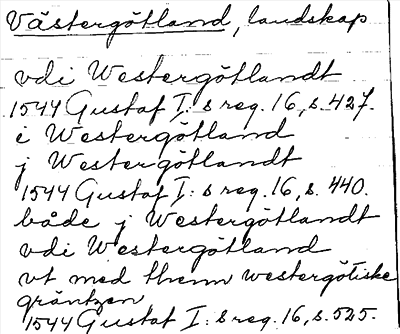 Västergötland, landskap
vdi Westergötlandt
1544 Gustaf I:s reg. 16, s. 427.
i Westergötland
j Westergötlandt
1544 Gustaf I:s reg. 16, s. 440.
både j Westergötlandt
vdi Westergötland
vt med thenn westergötiske
gräntzen
1544 Gustaf I:s reg. 16, s. 525.